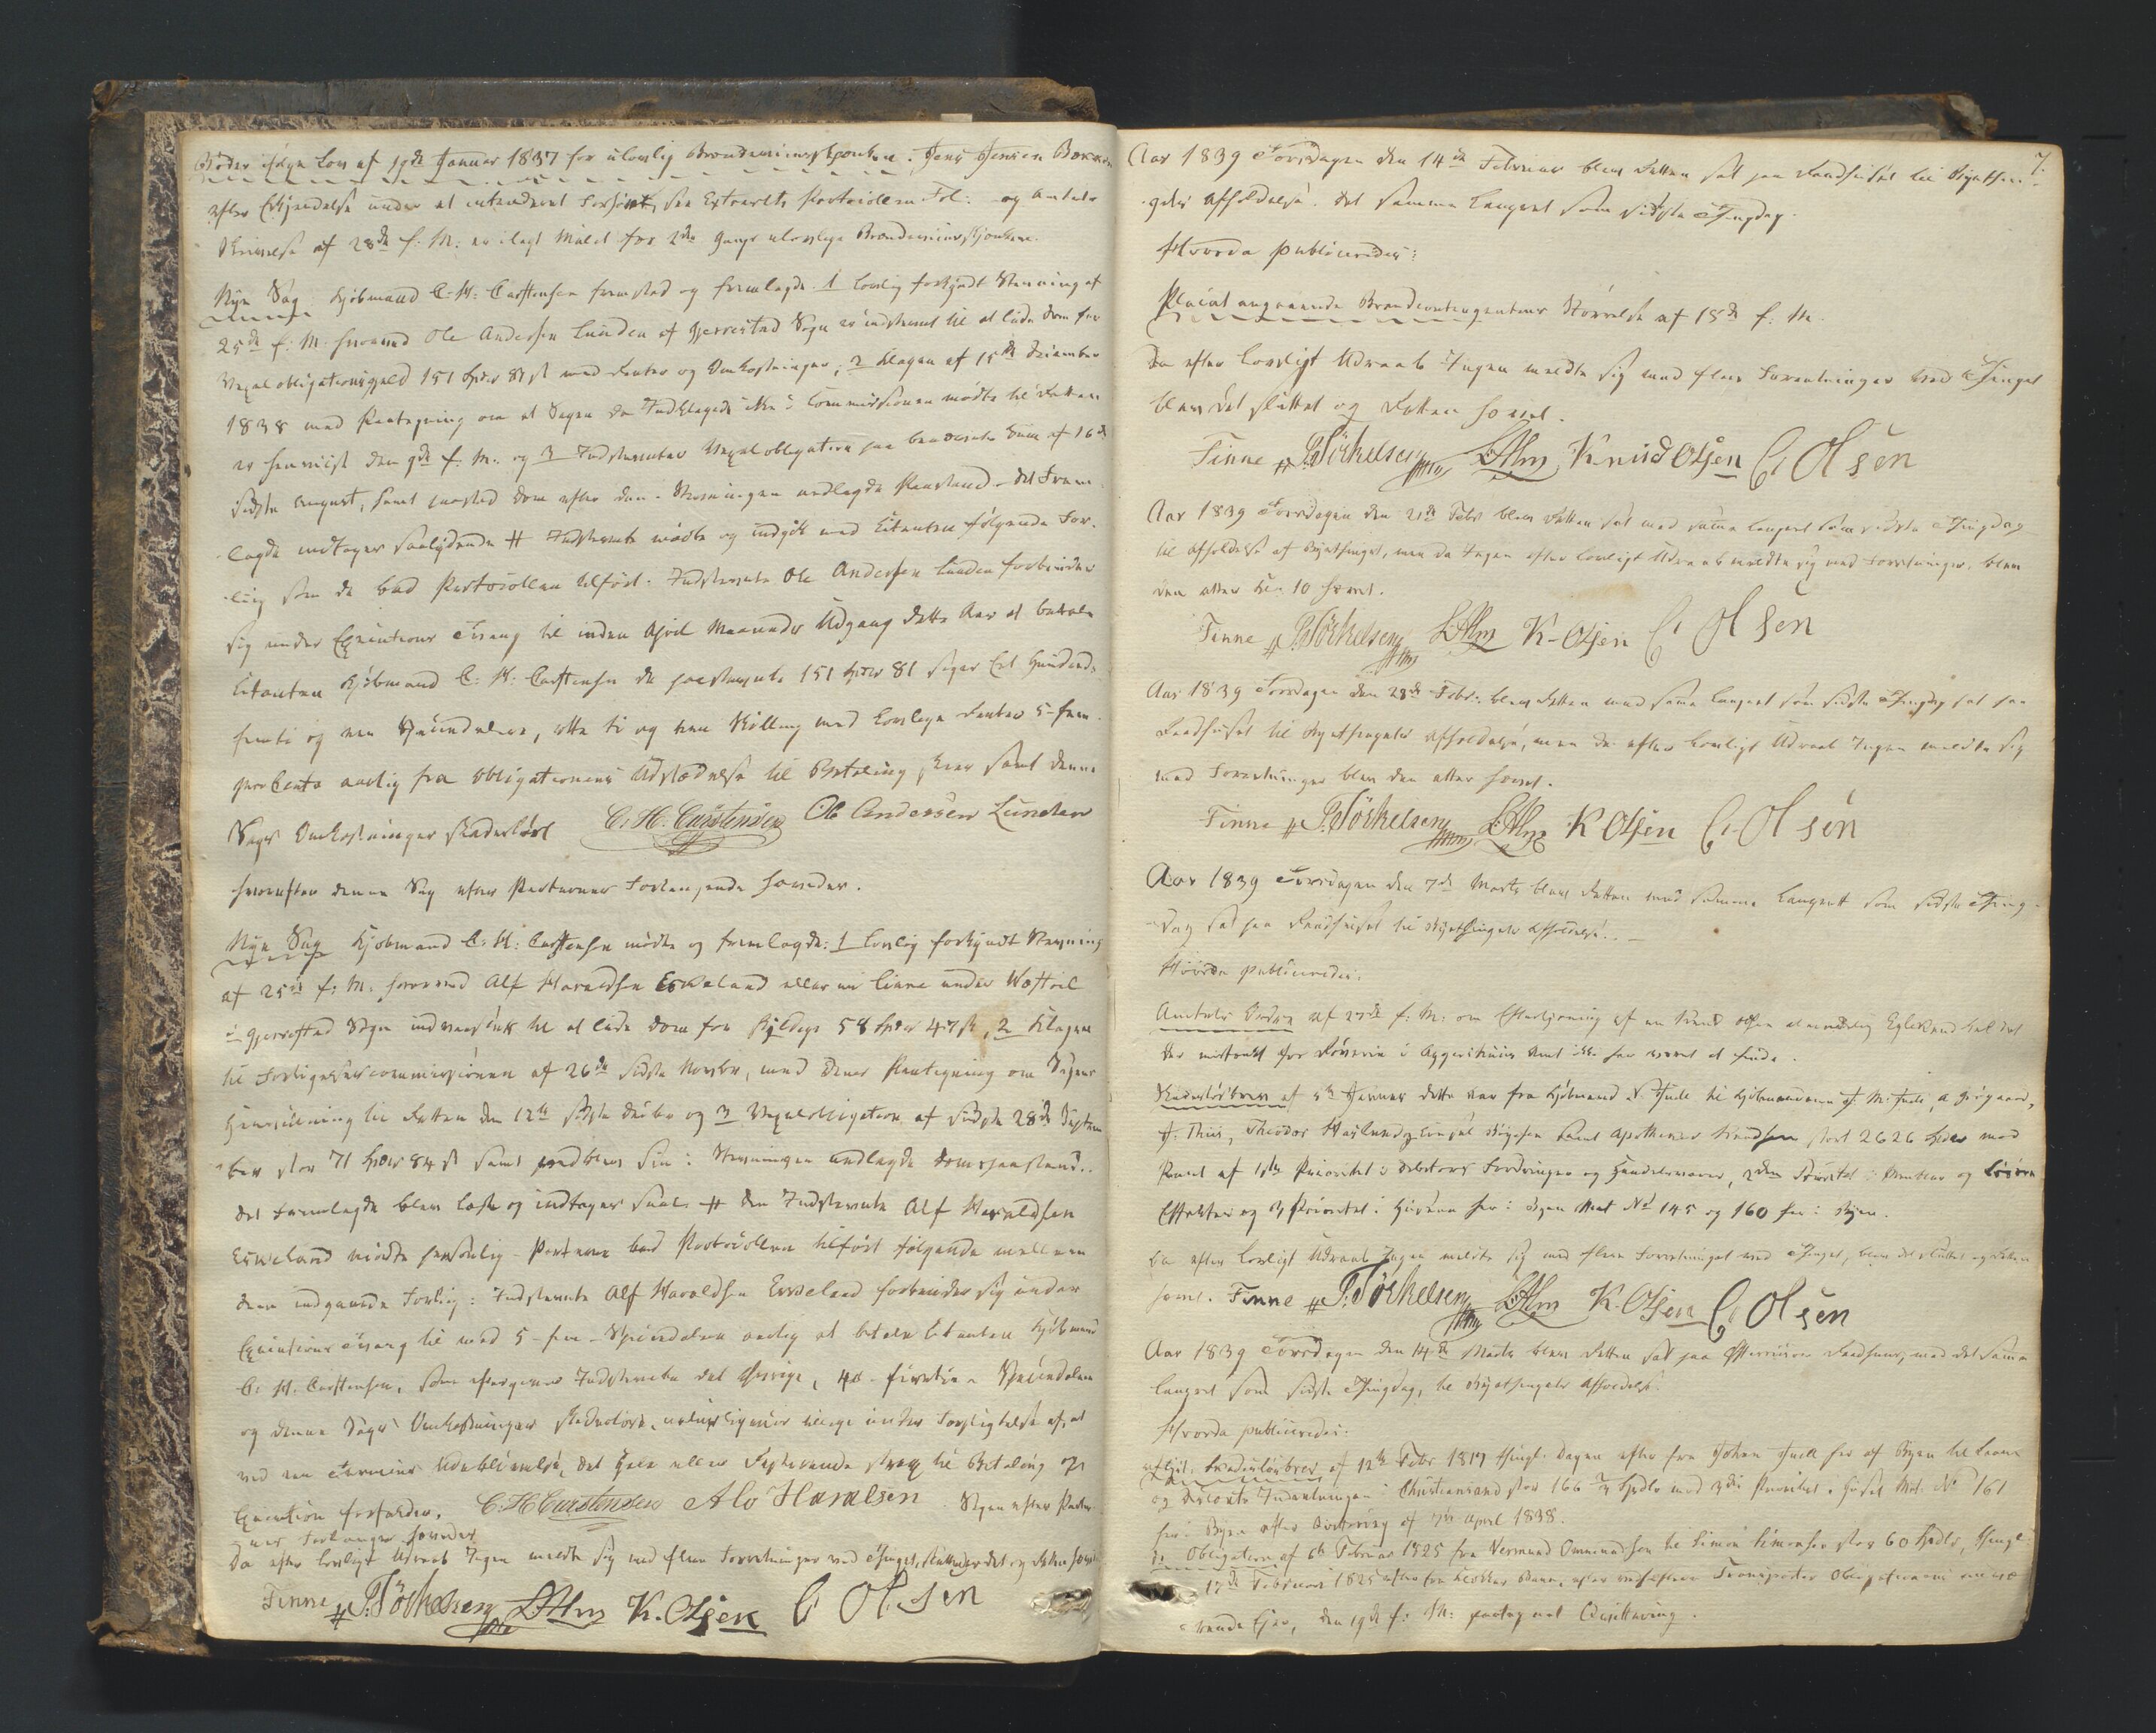 Bøder ifølge Lov af 19de Januar 1837 for ulovlig Brændeviinsskjenken. Jens Jensen
efter Erkjendelse under et extraderet Forhør, see Extraretts Protocollen Fol: og Amtets
Skrivelse af 28de f. M: er ilagt Mulct for 2den Gangs ulovlige Brændeviinsskjenken.
Nye Sag Kjøbmand C. H: Carstensen fremstod og fremlagde 1 lovlig forkyndt Stevning af
25de f: M: hvorved Ole Andersen Lunden af Gjerrestad Sogn er indstevnt til at lide Dom for
Vexelobligationsgjeld 151 Spdlr 81 ß med Renter og Omkostninger, 2 Klagen af 15de December
1838 med Paategning om at Sagen da Indklagede ikke i Commissionen mødte til Retten
er henviist den 9de f. M. og 3 Indstevntes Vexelobligation paa benævnte Sum af 16de
sidste August, samt paastod Dom efter den i Stevningen nedlagde Paastand. Det Frem-
lagde indtages saalydende # Indstevnte mødte og indgik med Citanten følgende For-
liig som de bad Protocollen tilført. Indstevnte Ole Andersen Lunden forbinder
sig under Executions Tvang til inden April Maaneds Udgang dette Aar at betale
Citanten Kjøbmand C: H: Carstensen de paastevnte 151 Spdlr 81 siger Et Hundrede
femti og een Speciedaler, otte ti og een Skilling med lovlige Renter 5-fem
pro Cento aarlig fra Obligationens Udstædelse til Betaling skeer samt denne
Sags Omkostninger skadesløst C. H. Carstensen Ole Andersen Lunden
hvorefter denne Sag efter Parternes Forlangende hævedes.
Nye Sag Kjøbmand C: H: Carstensen mødte og fremlagde: 1 lovlig forkyndt Stevning
af 25de f: M: hvorved Alf Haraldsen Eskeland eller nu Linne under
i Gjerrestad Sogn indvarsles til at lide Dom for skyldige 58 Spdlr 47 ß, 2 Klagen
til Forligelsescommissionen af 26de sidste Novbr, med dens Paategning om Sagens
Henviisning til Retten den 12te sidste Decbr og 3 Vexelobligation af sidste 28de Septem
ber stor 71 Spdlr 84 ß samt sin i Stevningen nedlagde Domspaastand.
Det Fremlagde blev læst og indtages saal. # Den Indstevnte Alf Haraldsen
Eskeland mødte personlig. Parterne bad Protocollen tilført følgende mellem
dem indgaaede Forlig: Indstevnte Alf Haraldsen Eskeland forbinder sig under
Executions Tvang til med 5-fem-Speciedaler aarlig at betale Citanten Kjøbmand
C: H. Carstensen, som eftergiver Indstevnte det Øvrige, 40-firetie-Speciedaler
og denne Sags Omkostninger skadesløst, under Forpligtelse af, at
ved een Termins Udeblivelse, det Hele eller Resterende strax til Betaling pr
Execution forfalder. C. H Carstensen Alv Haralsen Sagen efter Parter
nes Forlangende hævedes
Da efter lovligt Udraab Ingen meldte sig med flere Forretninger ved Thinget, sluttedes det og Retten hævet
Finne P. Törkelsen K. Olsen C: Olsen
7.
Aar 1839 Torsdagen den 14de Februar blev Retten sat paa Raadhuset til Byethin-
gets Afholdelse. Det samme Laugret som sidste Thingdag.
Hvorda publiceredes:
Placat angaaende Brandcontingentens Størrelse af 15de f: M.
Da efter lovligt Udraab Ingen meldte sig med flere Forretninger ved Thinget
blev det sluttet og Retten hævet.
Finne P. Törkelsen Knud Olsen C: Olsen
Aar 1839 Torsdagen den 21de Febr blev Retten sat med samme Laugret som sidste Thingdag
til Afholdelse af Byethinget, men da Ingen efter lovligt Udraab meldte sig med Forretninger, blev
den atter Kl. 10 hævet.
Finne P. Törkelsen K-Olsen C: Olsen
Aar 1839 Torsdagen den 28de Febr: blev Retten med samme Laugret som sidste Thingdag sat paa
Raadhuset til Byethingets Afholdelse, men da efter lovligt Udraab Ingen meldte sig
med Forretninger blev den atter hævet.
Finne P. Törkelsen K Olsen C: Olsen
Aar 1839 Torsdagen den 7de Marts blev Retten med samme Laugrett som sidste Thing-
dag sat paa Raadhuset til Byethingets Afholdelse.
Hvorda publiceredes:
Amtets Ordre af 27de f: M: om Efterlysning af en Knud Olsen
der mistænkt for Røverie i Aggershuus Amt ikke har været at finde.
Skadesløsbrev af 5te Januar dette Aar fra Kjøbmand N Juell til Kjøbmændene J. M. Juell,
J. Thiis, Theodor samt Apotheker Knudsen stort 2626 Spdlr med
Pant af 1ste Prioritet i Debitors Fordringer og Handelsvarer, 2den Prioritet i Meubler og Løsøre
Effekter og 3die Prioritet i Husene her i Byen Mat No 145 og 160 her i Byen.
Da efter lovligt Udraab Ingen meldte sig med flere Forretninger ved Thinget, blev det sluttet og Retten
hævet. Finne P. Törkelsen K. Olsen C: Olsen
Aar 1839 Torsdagen den 14de Marts blev Retten sat paa Østerrisøers Raadhuus, med det samme
Laugret som sidste Thingdag, til Byethingets Afholdelse.
Hvorda publiceredes:
Aflyst, Skadesløsbrev af 12te Febr 1817 thingl. Dagen efter fra Johan Juell her af Byen til Laane
og Disconto Indretningen i Christiansand stor 166 2/3 Spdlr med 3die Prioritet i Huset Mt. No 161
her i Byen efter Qvittering af April 1838.
D: Obligation af 6te Februar 1825 fra Vermund Ommundsen til Simon Simonsen stor 60 Spdlr, thingl:
17de Februar 1825 efter fra efter Transporter Obligationens nu væ-
rende Ejer, den 19de f: M: paategnet Qvittering.